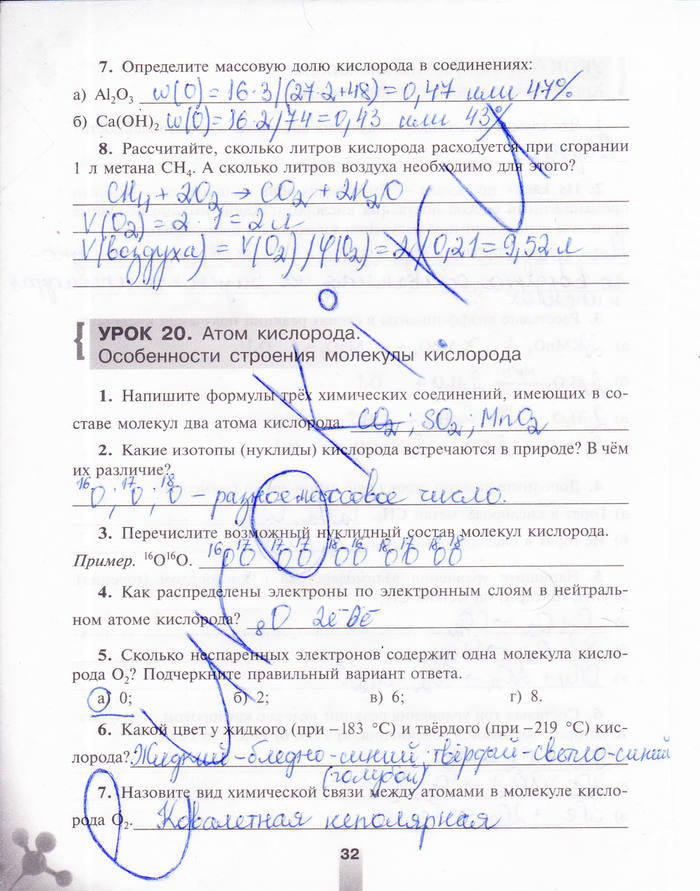 7. Определите массовую долю кислорода в соединениях:
а) Al₂O₃ w(O) = 16·3/(27·2+48) = 0,47 или 47%
б) Ca(OH)₂ w(O) = 16·2/74 = 0,43 или 43%
8. Рассчитайте, сколько литров кислорода расходуется при сгорании
1 л метана CH₄. А сколько литров воздуха необходимо для этого?
CH₄ + 2O₂ → CO₂ + 2H₂O
V(O₂) = 2 · 1 = 2 л
V(воздуха) = V(O₂)/φ(O₂) = 2/0,21 = 9,52 л
УРОК 20. Атом кислорода.
Особенности строения молекулы кислорода
1. Напишите формулы трёх химических соединений, имеющих в со-
ставе молекул два атома кислорода. CO₂; SO₂; MnO₂
2. Какие изотопы (нуклиды) кислорода встречаются в природе? В чём
их различие?
¹⁶O; ¹⁷O; ¹⁸O – разное массовое число.
3. Перечислите возможный нуклидный состав молекул кислорода.
Пример. ¹⁶O¹⁶O. ¹⁶O¹⁷O ¹⁷O¹⁷O ¹⁸O¹⁶O ¹⁸O¹⁷O ¹⁸O¹⁸O
4. Как распределены электроны по электронным слоям в нейтраль-
ном атоме кислорода? ₈O 2ē 6ē
5. Сколько неспаренных электронов содержит одна молекула кисло-
рода O₂? Подчеркните правильный вариант ответа.
а) 0; б) 2; в) 6; г) 8.
6. Какой цвет у жидкого (при −183 °C) и твёрдого (при −219 °C) кис-
лорода? Жидкий – бледно-синий; твёрдый – светло-синий
(голубой)
7. Назовите вид химической связи между атомами в молекуле кисло-
рода O₂. Ковалетная неполярная
32